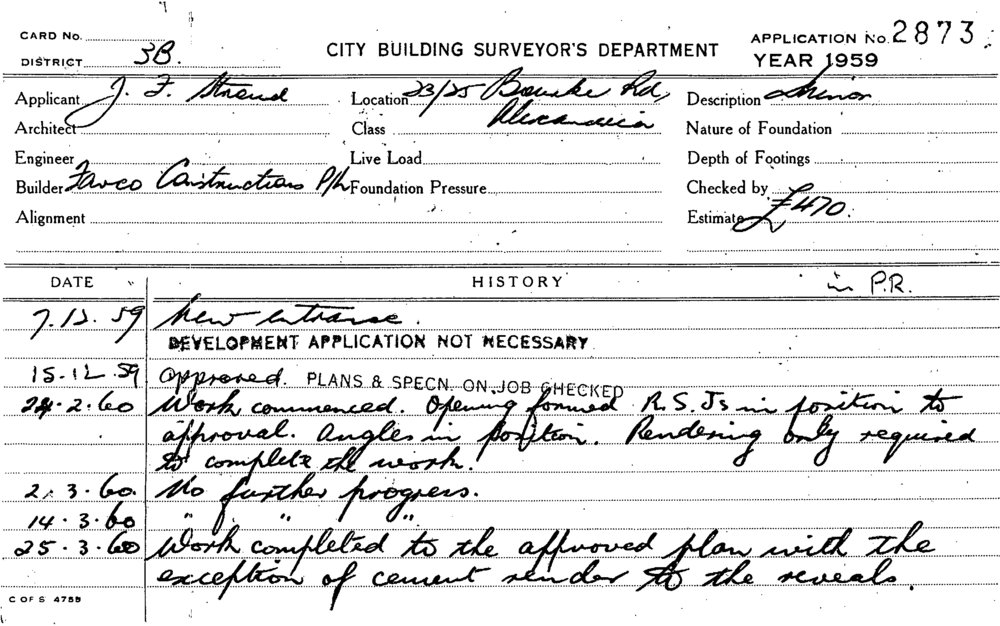 CARD No.
DISTRICT 3B.
CITY BUILDING SURVEYOR'S DEPARTMENT
APPLICATION No. 2873
YEAR 1959
Applicant J. F. Straud Location 23/25 Bourke Rd, Description Minor
Architect Class Alexandria Nature of Foundation
Engineer Live Load Depth of Footings
Builder Favco Constructions P/L Foundation Pressure Checked by
Alignment Estimate £470.
DATE HISTORY in P.R.
7.12.59 New entrance.
DEVELOPMENT APPLICATION NOT NECESSARY
15.12.59 Approved. PLANS & SPECN. ON JOB CHECKED
24.2.60 Work commenced. Opening formed R.S.Js in position to
approval. Angles in position. Rendering only required
to complete the work.
2.3.60. No further progress.
14.3.60 " " "
25.3.60 Work completed to the approved plan with the
exception of cement render to the reveals.
C OF S 4755